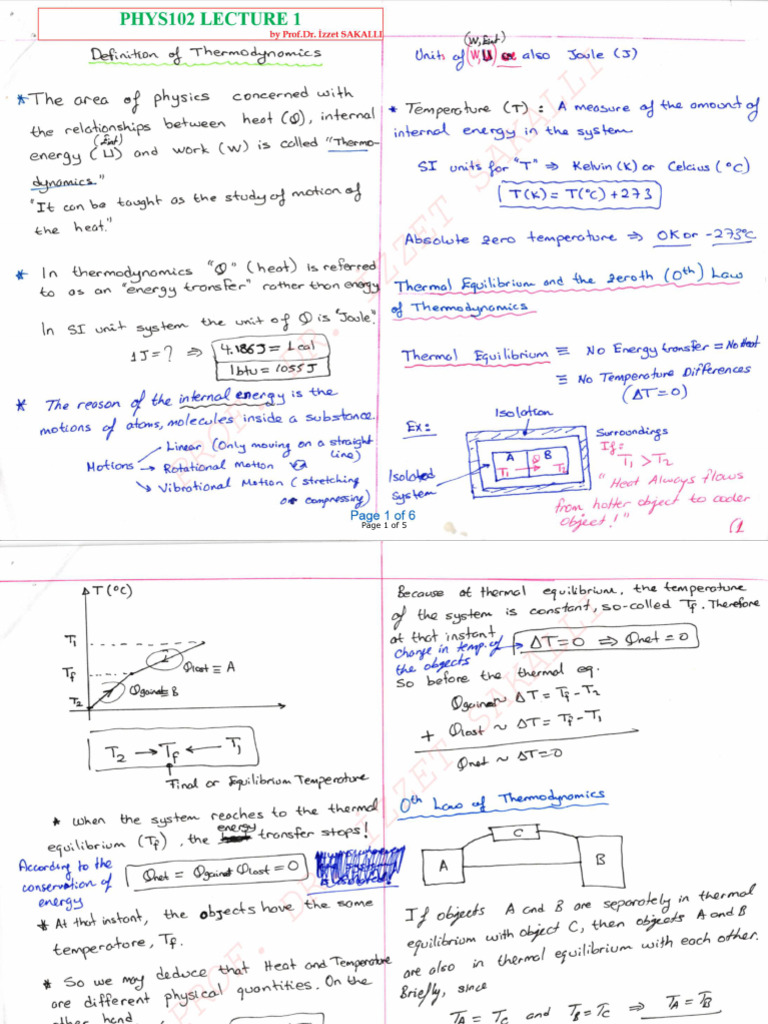 PHYS102 LECTURE 1
by Prof.Dr. İzzet SAKALLI
Definition of Thermodynamics
* The area of physics concerned with
the relationships between heat (Q), internal
(Eint)
energy (U) and work (W) is called "Thermo-
dynamics."
"It can be taught as the study of motion of
the heat."
* In thermodynamics "Q" (heat) is referred
to as an "energy transfer" rather than energy
In SI unit system the unit of Q is "Joule".
1J = ? ⇒ 4.186J = 1cal
1btu = 1055J
* The reason of the internal energy is the
motions of atoms, molecules inside a substance.
Motions
Linear (Only moving on a straight
line)
→ Rotational motion
Vibrational Motion (stretching
or compressing)
(W, Eint)
Unit of (W, U) also Joule (J)
* Temperature (T) : A measure of the amount of
internal energy in the system
SI units for "T" ⇒ Kelvin (K) or Celcius (°C)
T(K) = T(°C) + 273
Absolute zero temperature ⇒ 0K or -273°C
Thermal Equilibrium and the zeroth (0th) Law
of Thermodynamics
Thermal Equilibrium ≡ No Energy transfer = No Heat
≡ No Temperature Differences
(ΔT=0)
Ex:
Isolation
Isolated
system
A
B
T1
Q
T2
Surroundings
If:
T1 > T2
"Heat Always flows
from hotter object to cooler
object!"
(1
Page 1 of 6
Page 1 of 5
T(°C)
T1
Tf
T2
Qlost ≡ A
Qgained ≡ B
T2 → Tf ← T1
Final or Equilibrium Temperature
* When the system reaches to the thermal
energy
equilibrium (Tf), the transfer stops!
According to the
conservation of
energy
Qnet = Qgained + Qlost = 0
* At that instant, the objects have the same
temperature, Tf.
* So we may deduce that Heat and Temperature
are different physical quantities. On the
other hand
Because at thermal equilibrium, the temperature
of the system is constant, so-called Tf. Therefore
at that instant
Change in temp. of
the objects
ΔT=0 ⇒ Qnet = 0
So before the thermal eq.
Qgained ~ ΔT = Tf - T2
+ Qlost ~ ΔT = Tf - T1
Qnet ~ ΔT = 0
0th Law of Thermodynamics
C
A
B
If objects A and B are separately in thermal
equilibrium with object C, then objects A and B
are also in thermal equilibrium with each other.
Briefly, since
TA = TC and TB = TC ⇒ TA = TB
PROF. DR. IZZET SAKALLI
PROF. DR. IZZET SAKALLI